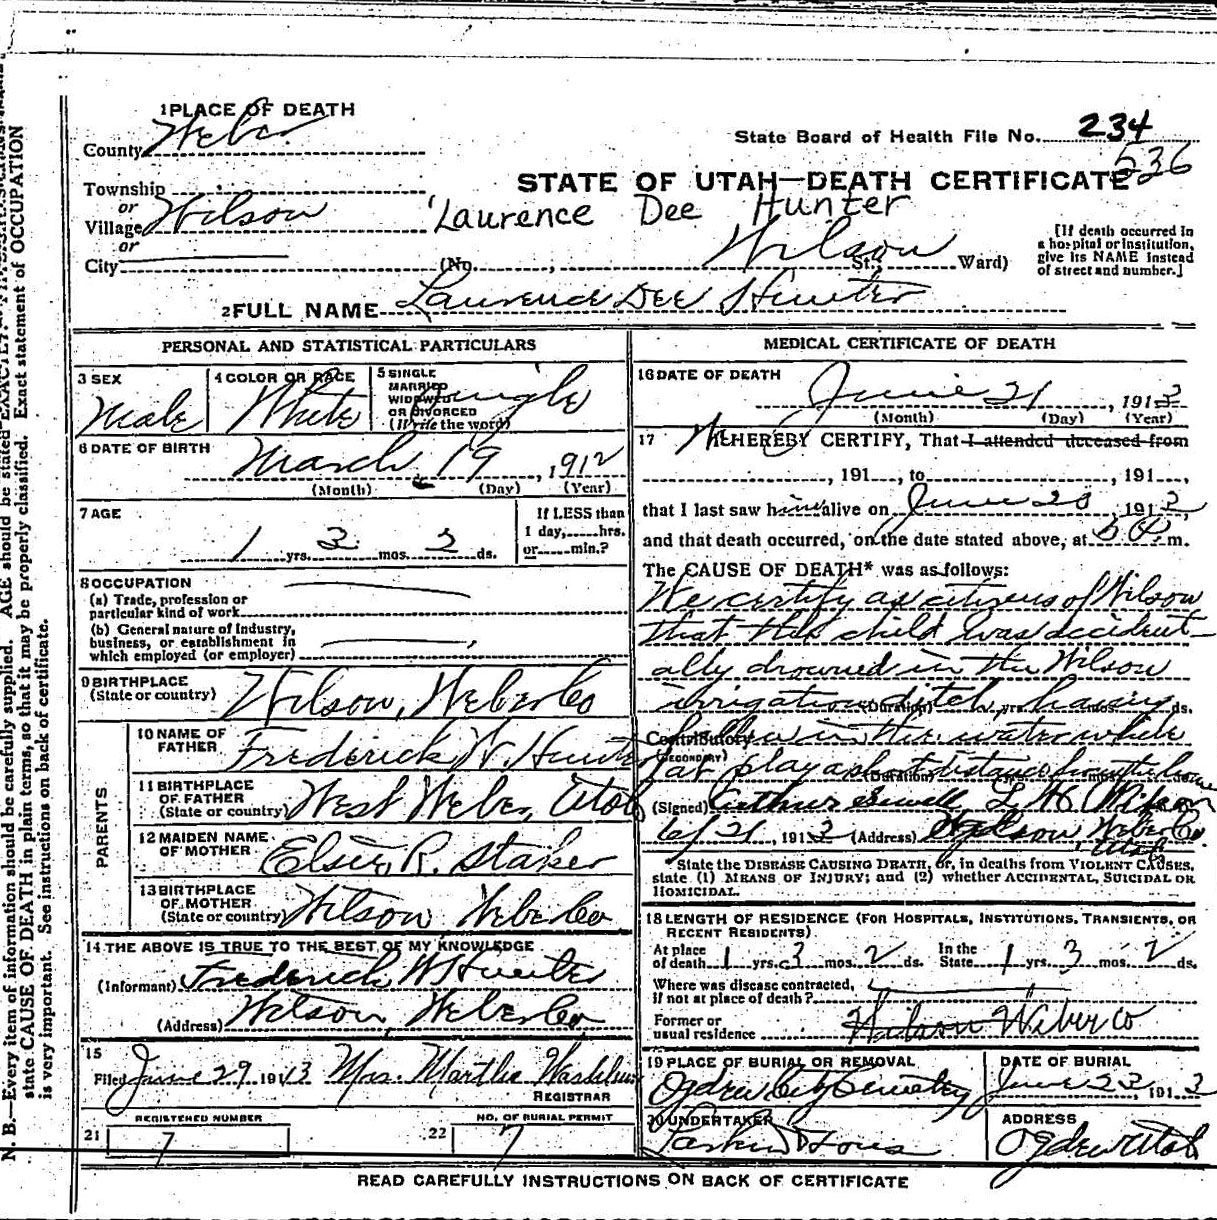 1 PLACE OF DEATH
County Weber
State Board of Health File No. 234
536
Township
or
Village Wilson
or
City
STATE OF UTAH—DEATH CERTIFICATE
Laurence Dee Hunter
(No. , Wilson St., Ward)
[If death occurred in
a hospital or institution,
give its NAME instead
of street and number.]
2 FULL NAME Laurence Dee Hunter
PERSONAL AND STATISTICAL PARTICULARS
3 SEX
Male
4 COLOR OR RACE
White
5 SINGLE
MARRIED
WIDOWED
OR DIVORCED
(Write the word)
Single
6 DATE OF BIRTH
March 19, 1912
(Month) (Day) (Year)
7 AGE
1 yrs. 3 mos. 2 ds.
If LESS than
1 day, hrs.
or min.?
8 OCCUPATION
(a) Trade, profession or
particular kind of work
(b) General nature of Industry,
business, or establishment in
which employed (or employer)
9 BIRTHPLACE
(State or country) Wilson, Weber Co
PARENTS
10 NAME OF
FATHER Frederick W. Hunter
11 BIRTHPLACE
OF FATHER
(State or country) West Weber, Utah
12 MAIDEN NAME
OF MOTHER Elsie R. Staker
13 BIRTHPLACE
OF MOTHER
(State or country) Wilson Weber Co
14 THE ABOVE IS TRUE TO THE BEST OF MY KNOWLEDGE
(Informant) Frederick W Hunter
(Address) Wilson, Weber Co,
15
Filed June 29 1913 Mrs. Martha
REGISTRAR
REGISTERED NUMBER
21 7
NO. OF BURIAL PERMIT
22 7
MEDICAL CERTIFICATE OF DEATH
16 DATE OF DEATH
June 21, 1913
(Month) (Day) (Year)
17 We HEREBY CERTIFY, That I attended deceased from
, 191 , to , 191 ,
that I last saw him alive on June 20, 1913,
and that death occurred, on the date stated above, at 5 P. m.
The CAUSE OF DEATH* was as follows:
We certify as citizens of Wilson
that this child was accident-
ally drowned in the Wilson
irrigation ditch, having
(Duration) yrs. mos. ds.
Contributory fallen in the water while
(SECONDARY)
at play a short distance from the house
(Duration)
(Signed) Arthur Sewell L. W. Wilson
6/21, 1913 (Address) Wilson, Weber Co.
Utah
State the DISEASE CAUSING DEATH, or, in deaths from VIOLENT CAUSES,
state (1) MEANS OF INJURY; and (2) whether ACCIDENTAL, SUICIDAL OR
HOMICIDAL.
18 LENGTH OF RESIDENCE (FOR HOSPITALS, INSTITUTIONS, TRANSIENTS, OR
RECENT RESIDENTS).
At place
of death 1 yrs. 3 mos. 2 ds.
In the
State 1 yrs. 3 mos. 2 ds.
Where was disease contracted,
if not at place of death?
Former or
usual residence Wilson Weber Co
19 PLACE OF BURIAL OR REMOVAL
Ogden City Cemetery
DATE OF BURIAL
June 23, 1913
20 UNDERTAKER
Larkin & Sons
ADDRESS
Ogden Utah
READ CAREFULLY INSTRUCTIONS ON BACK OF CERTIFICATE
N. B.—Every item of information should be carefully supplied. AGE should be stated EXACTLY.
state CAUSE OF DEATH in plain terms, so that it may be properly classified. Exact statement of OCCUPATION
is very important. See instructions on back of certificate.